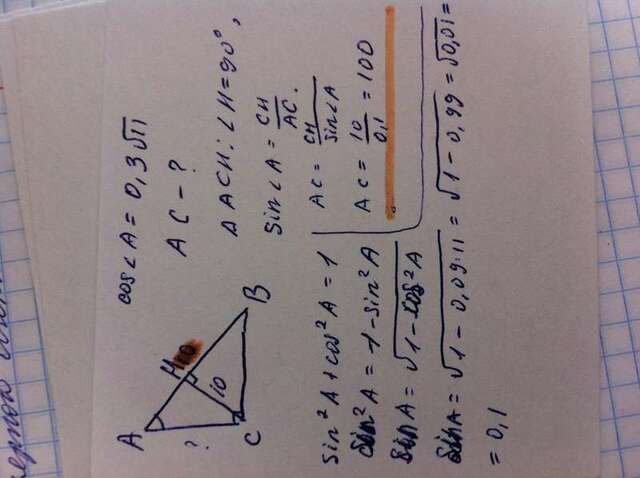 cos∠A = 0,3√11
AC - ?
A
H
?
10
C
B
△ACH: ∠H=90°,
sin∠A = CH/AC.
AC = CH/sin∠A
AC = 10/0,1 = 100
sin²A + cos²A = 1
sin²A = -1-sin²A
sin A = √1-cos²A
sin A = √1-0,09·11 = √1-0,99 = √0,01 =
= 0,1